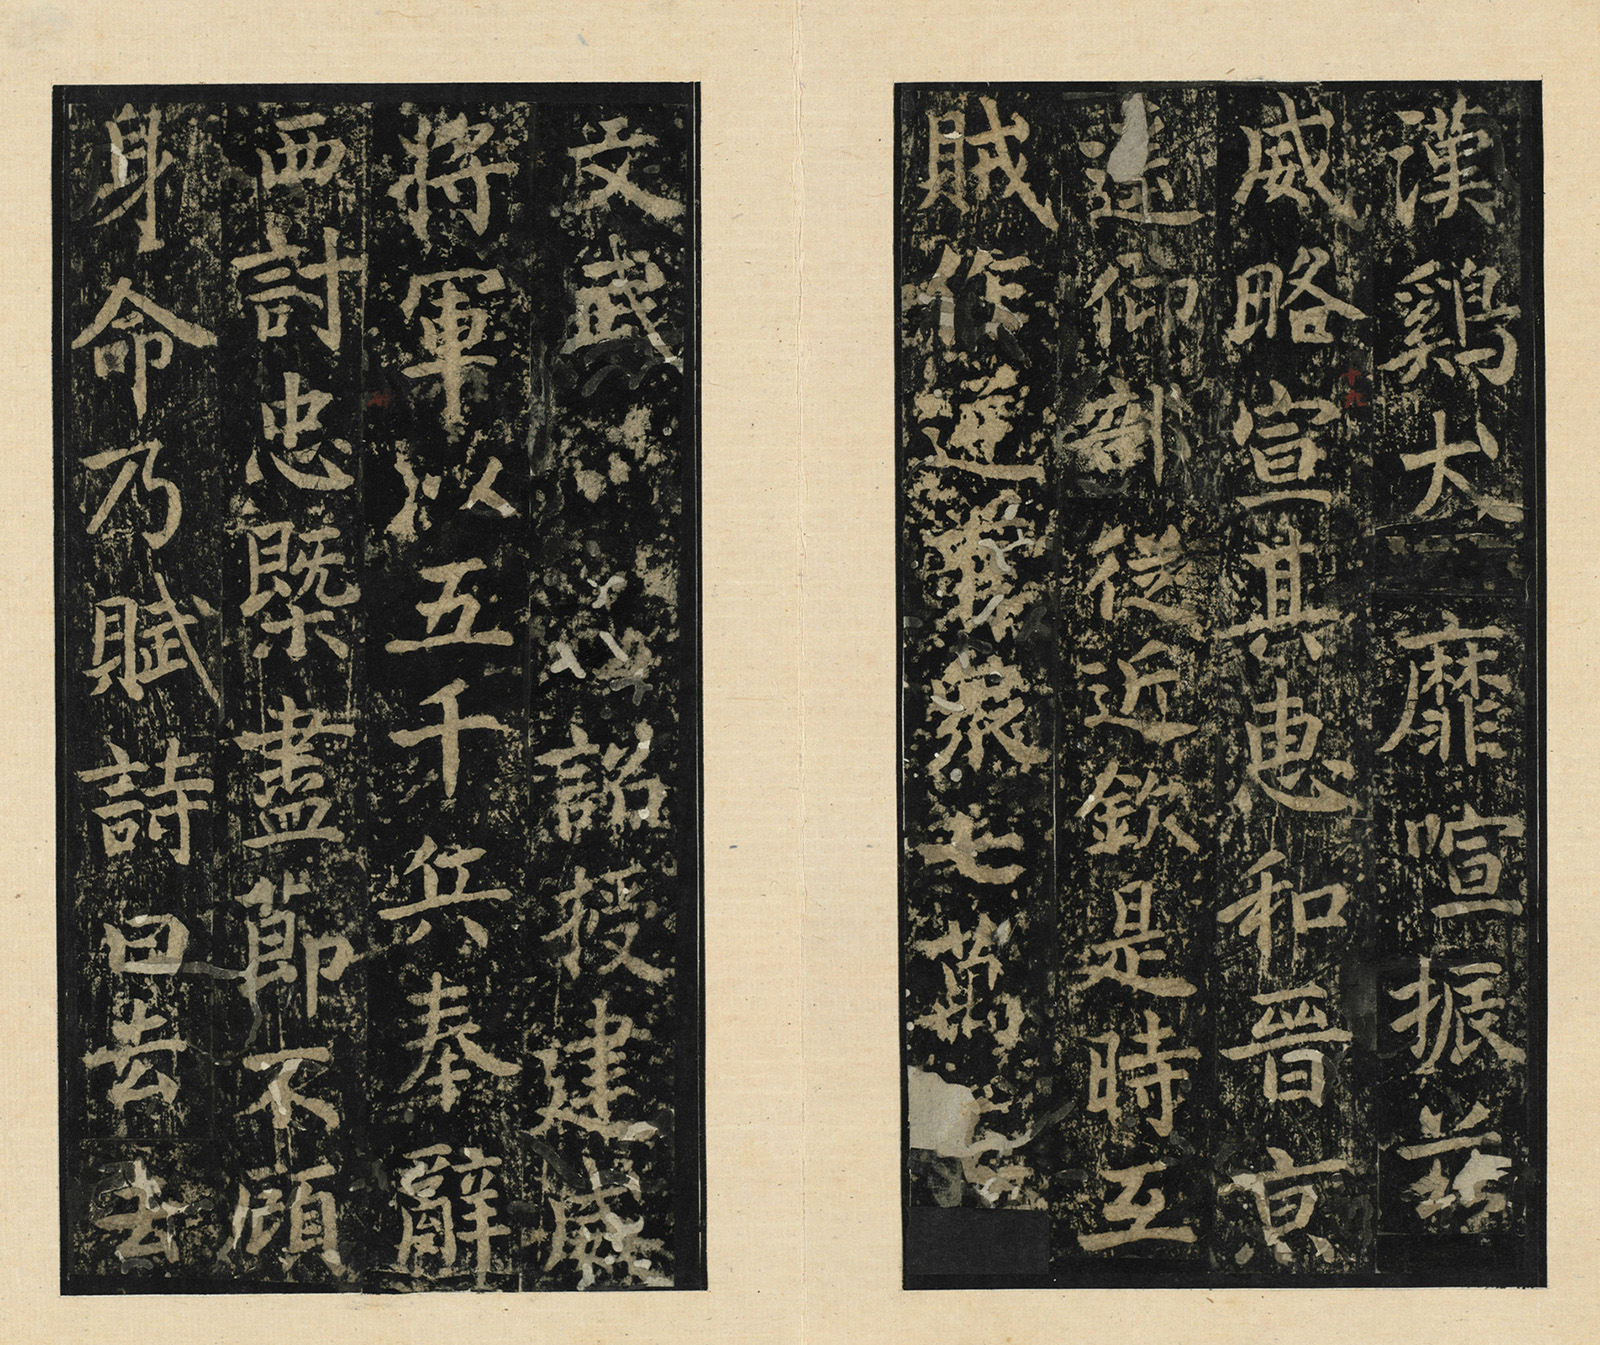 漢鷄犬靡喧振兹
威略宣其惠和晉京
遠仰部從近欽是時互
賊作逆擁衆七萬
文武詔授建威
將軍以五千兵奉辭
西討忠槩盡節不顧
身命乃賦詩曰去去